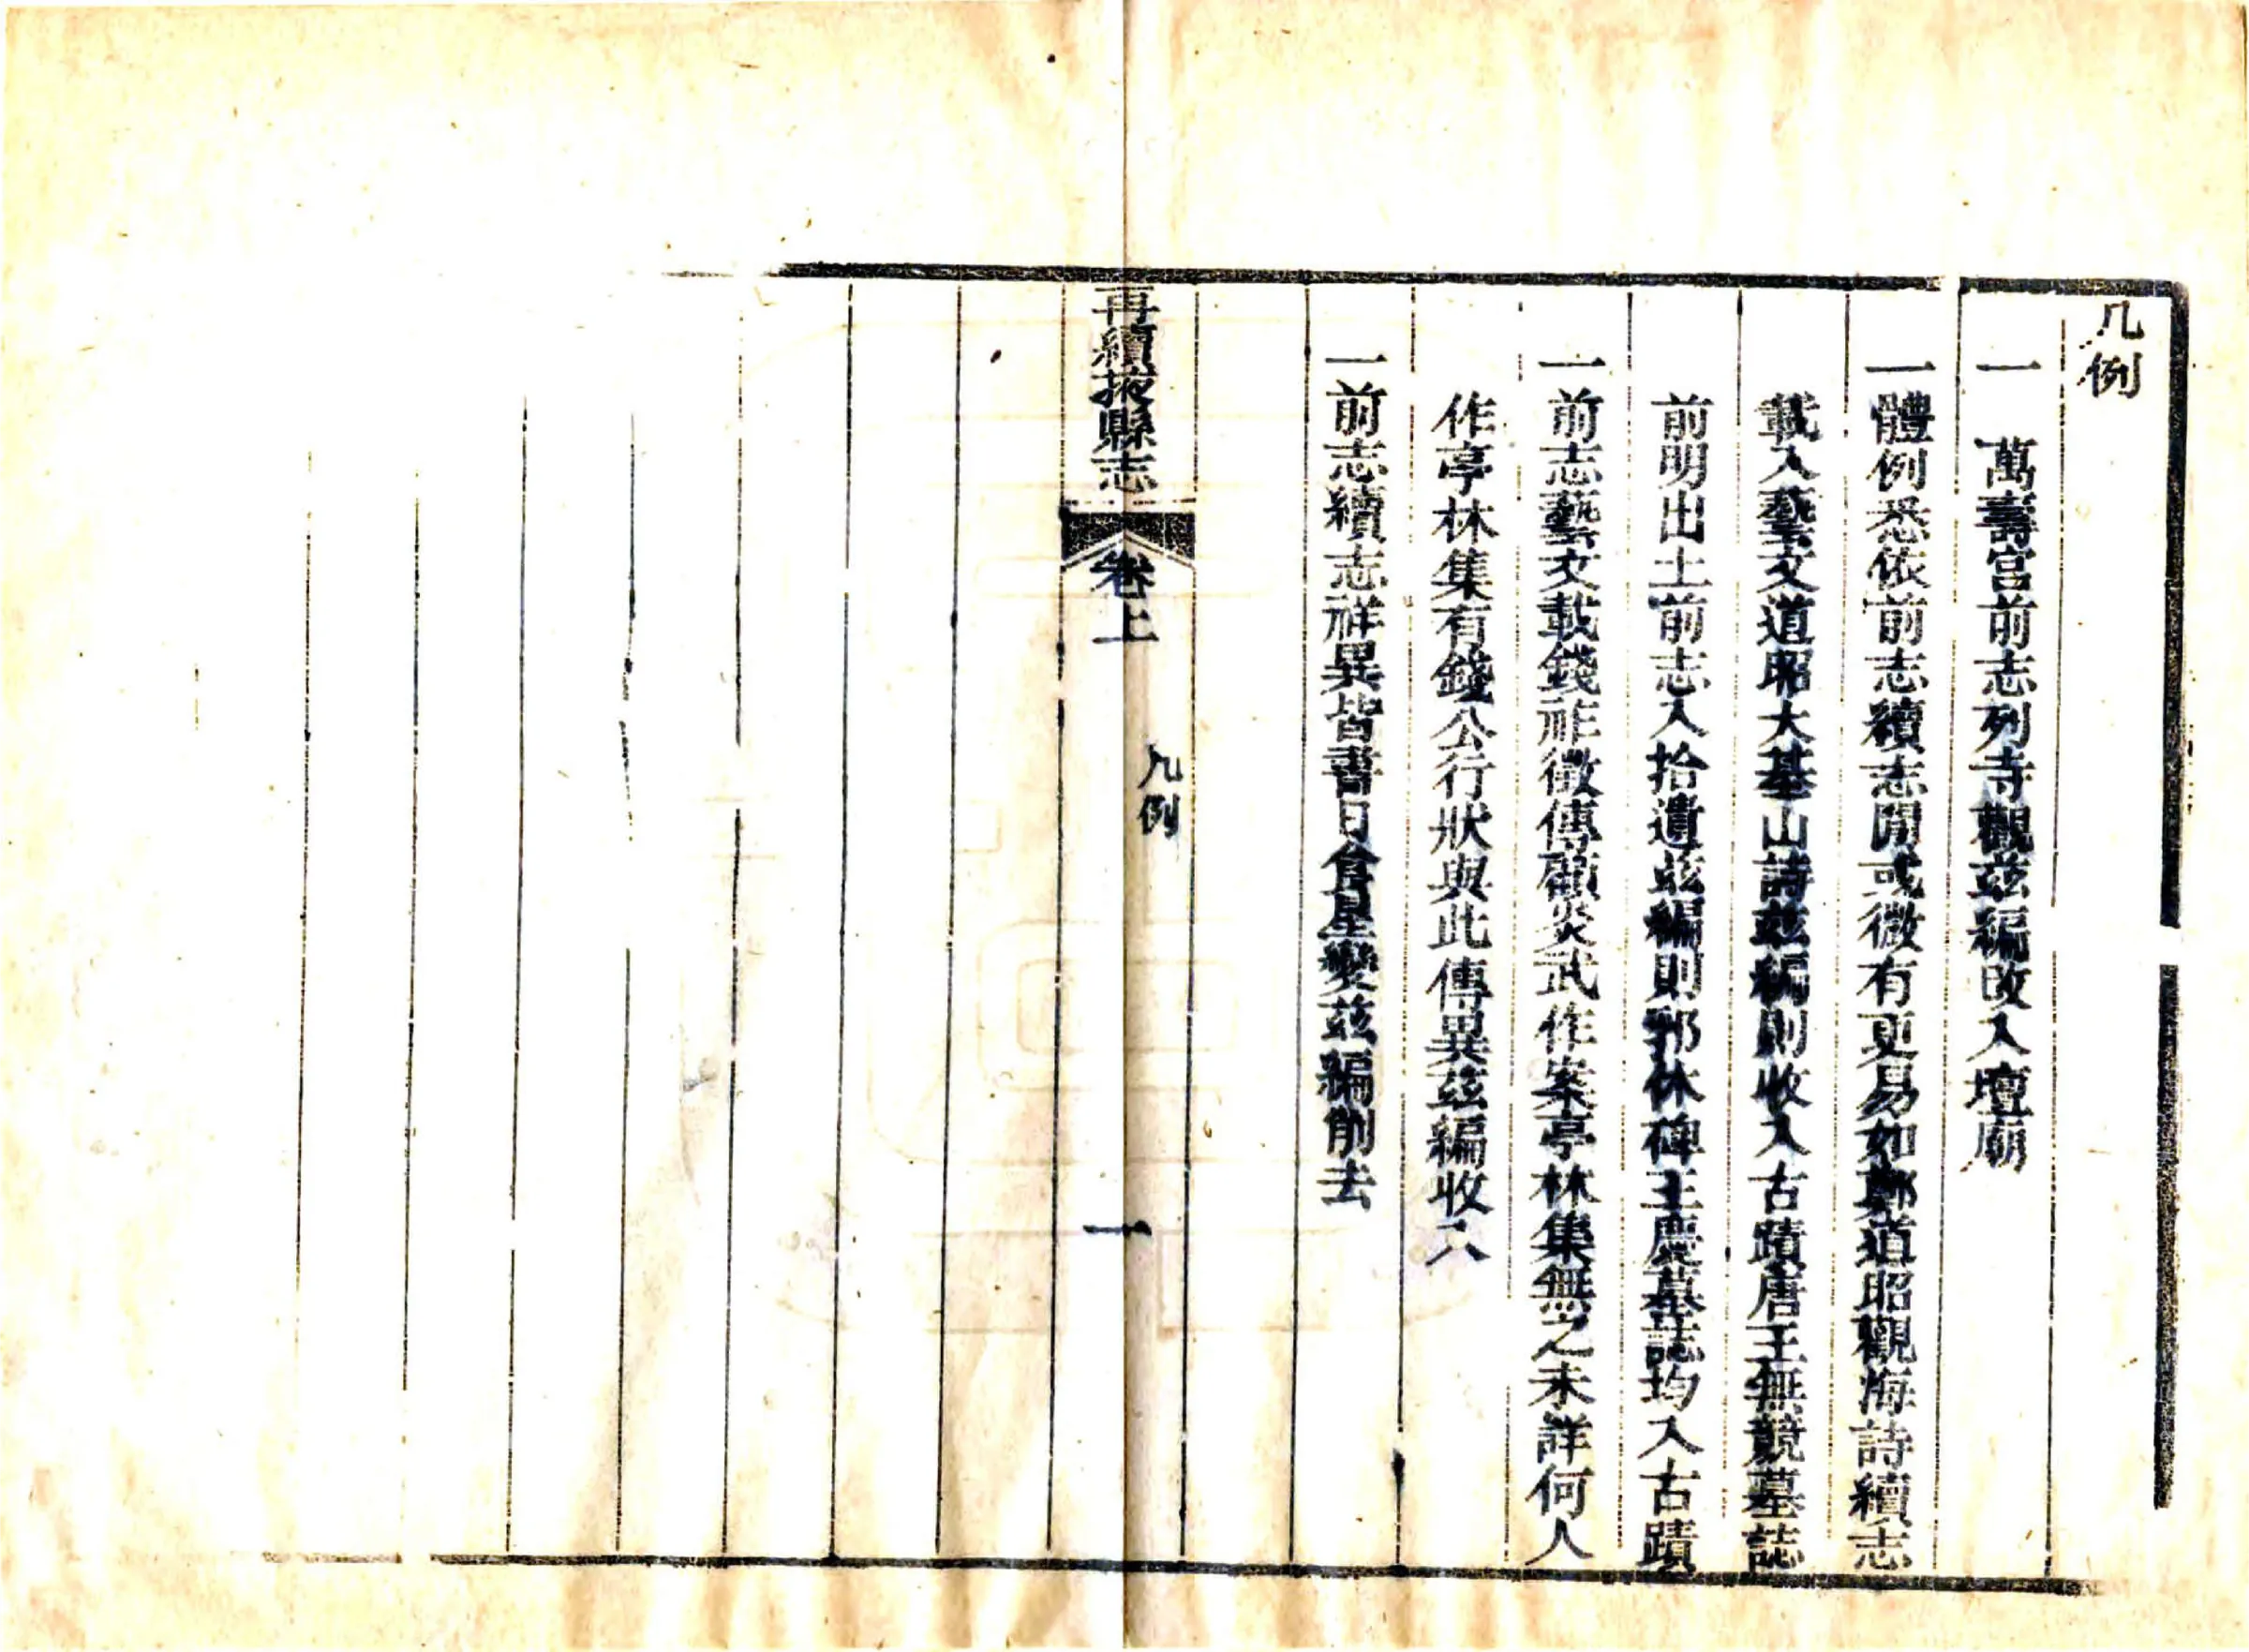 凡例
一　萬壽宮前志列寺觀茲編改入壇廟
一體例悉依前志續志間或微有更易如鄭道昭觀海詩續志
載入藝文道昭大基山詩茲編則收入古蹟唐王無競墓誌
前明出土前志入拾遺茲編則郭休碑王慶墓誌均入古蹟
一前志藝文載錢祚徵傳顧炎武作案亭林集無之未詳何人
作亭林集有錢公行狀與此傳異茲編收入
一前志續志祥異皆書日食星變茲編削去
再續掖縣志
卷上
凡例
一